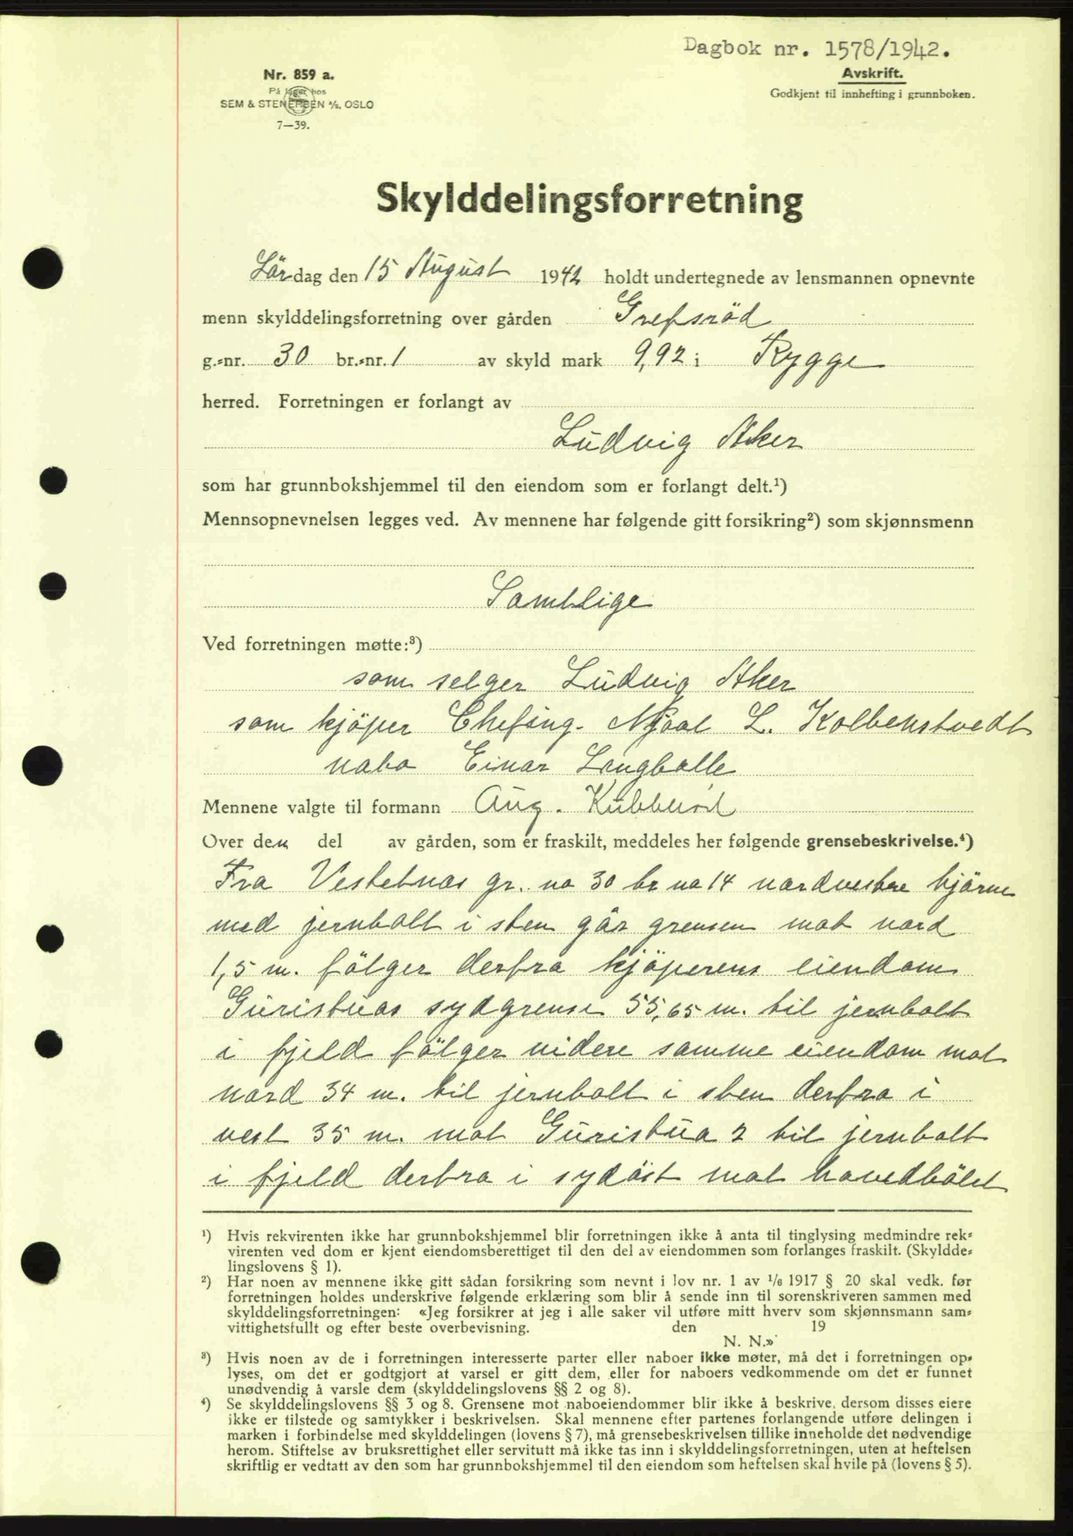 Dagbok nr. 1578/1942.
Nr. 859 a.
På lager hos
SEM & STENERSEN A/S, OSLO
7—39.
Avskrift.
Godkjent til innhefting i grunnboken.
Skylddelingsforretning
Lördag den 15 August 1942 holdt undertegnede av lensmannen opnevnte
menn skylddelingsforretning over gården Grefsröd
g.-nr. 30 br.-nr. 1 av skyld mark 9,92 i Rygge
herred. Forretningen er forlangt av
Ludvig Aker
som har grunnbokshjemmel til den eiendom som er forlangt delt.¹)
Mennsopnevnelsen legges ved. Av mennene har følgende gitt forsikring²) som skjønnsmenn
Samtlige
Ved forretningen møtte:³)
som selger Ludvig Aker
som kjöper Chefing. L. Kolbenstvedt
nabo Einar Langballe
Mennene valgte til formann Aug. Kubberöd
Over den del av gården, som er fraskilt, meddeles her følgende grensebeskrivelse.⁴)
Fra Vestebnas gr. no 30 br no 14 nordvestre hjörne
med jernbolt i sten går grensen mot nord
1,5 m. fölger derfra kjöperens eiendom
Guristuas sydgrense 55,65 m. til jernbolt
i fjeld fölger videre samme eiendom mot
nord 34 m. til jernbolt i sten derfra i
vest 35 m. mot Guristua 2 til jernbolt
i fjeld derfra i sydöst mot hovedbölet
¹) Hvis rekvirenten ikke har grunnbokshjemmel blir forretningen ikke å anta til tinglysing medmindre rek-
virenten ved dom er kjent eiendomsberettiget til den del av eiendommen som forlanges fraskilt. (Skyldde-
lingslovens § 1).
²) Har noen av mennene ikke gitt sådan forsikring som nevnt i lov nr. 1 av 1/6 1917 § 20 skal vedk. før
forretningen holdes underskrive følgende erklæring som blir å sende inn til sorenskriveren sammen med
skylddelingsforretningen: «Jeg forsikrer at jeg i alle saker vil utføre mitt hverv som skjønnsmann sam-
vittighetsfullt og efter beste overbevisning. den 19
N. N.»
³) Hvis noen av de i forretningen interesserte parter eller naboer ikke møter, må det i forretningen op-
lyses, om det er godtgjort at varsel er gitt dem, eller for naboers vedkommende om det er funnet
unødvendig å varsle dem (skylddelingslovens §§ 2 og 8).
⁴) Se skylddelingslovens §§ 3 og 8. Grensene mot naboeiendommer blir ikke å beskrive, dersom disses eiere
ikke er tilstede og samtykker i beskrivelsen. Skal mennene efter partenes forlangende utføre delingen i
marken i forbindelse med skylddelingen (lovens § 7), må grensebeskrivelsen tillike inneholde det nødvendige
herom. Stiftelse av bruksrettighet eller servitutt må ikke tas inn i skylddelingsforretningen, uten at heftelsen
skriftlig er vedtatt av den som har grunnbokshjemmel til den eiendom som heftelsen skal hvile på (lovens § 5).